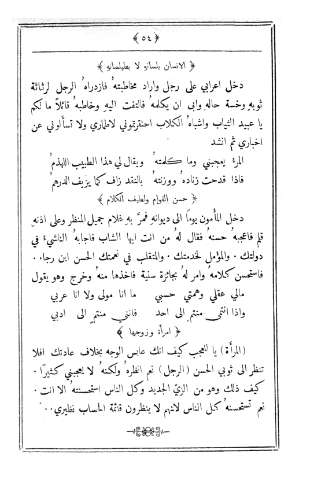 ﴿ ٥٤ ﴾
﴿ الانسان بلسانهِ لا بطيلسانهِ ﴾
دخل اعرابي على رجل واراد مخاطبتهُ فازدراهُ الرجل لرثاثة
ثوبهِ وخسة حالهِ وابى ان يكلمهُ فالتفت اليهِ وخاطبهُ قائلاً ما لكم
يا عبيد الثياب واشباه الكلاب احتقرتموني لاطماري ولا تسألوني عن
اخباري ثم انشد
المرءُ يعجبني وما كلمتهُ ويقال لي هذا الطبيب اللهذمُ
فاذا قدحت زنادهُ ووزنتهُ بالنقد زاف كما يزيف الدرهمُ
﴿ حسن القوام ولطيف الكلام ﴾
دخل المأمون يوماً الى ديوانهِ فمرَّ بهِ غلام جميل المنظر وعلى اذنهِ
قلم فاعجبهُ حسنهُ فقال لهُ من انت ايها الشاب فاجابهُ الناشيء في
دولتك . والمؤمل لخدمتك . والمتقلب في نعمتك الحسن ابن رجا .
فاستحسن كلامهُ وامر لهُ بجائزة سنية فاخذها منهُ وخرج وهو يقول
مالي عقلي وهمتي حسبي ما انا مولى ولا انا عربي
واذا انتمى منتمٍ الى احد فانني منتمٍ الى ادبي
﴿ امرأة وزوجها ﴾
(المرأة) يا للعجب كيف انك عابس الوجه بخلاف عادتك افلا
تنظر الى ثوبي الحسن (الرجل) نعم انظرهُ ولكنهُ لا يعجبني كثيراً.
كيف ذلك وهو من الزيّ الجديد وكل الناس استحسنتهُ الا انت .
نعم تستحسنهُ كل الناس لانهم لا ينظرون قائمة الحساب نظيري . .